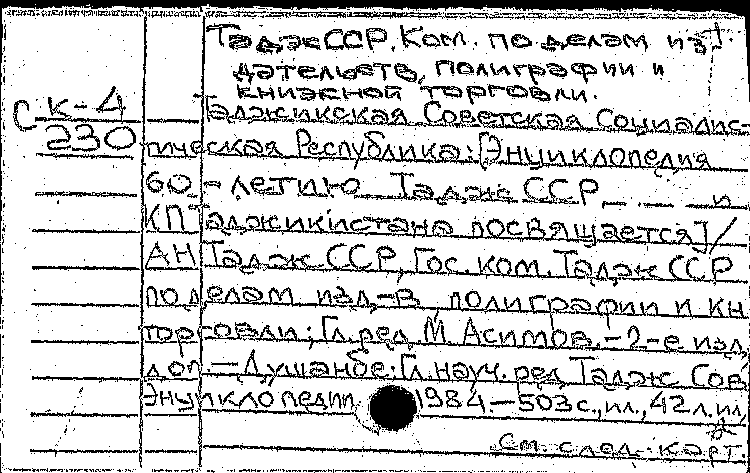 ТаджССР. Ком. по делам из-
дательств, полиграфии и
книжной торговли.
С К-4
230
Таджикская Советская Социалис-
тическая Республика: [Энциклопедия
60-летию Тадж ССР и
КП Таджикистана посвящается] /
АН Тадж ССР, Гос. ком. Тадж ССР
по делам изд-в, полиграфии и кн.
торговли; Гл. ред. М. Асимов. - 2-е изд.,
доп. - Душанбе: Гл. науч. ред. Тадж. Сов.
Энциклопедии 1984. - 503 с., ил., 42 л. ил.
См. след. карт.